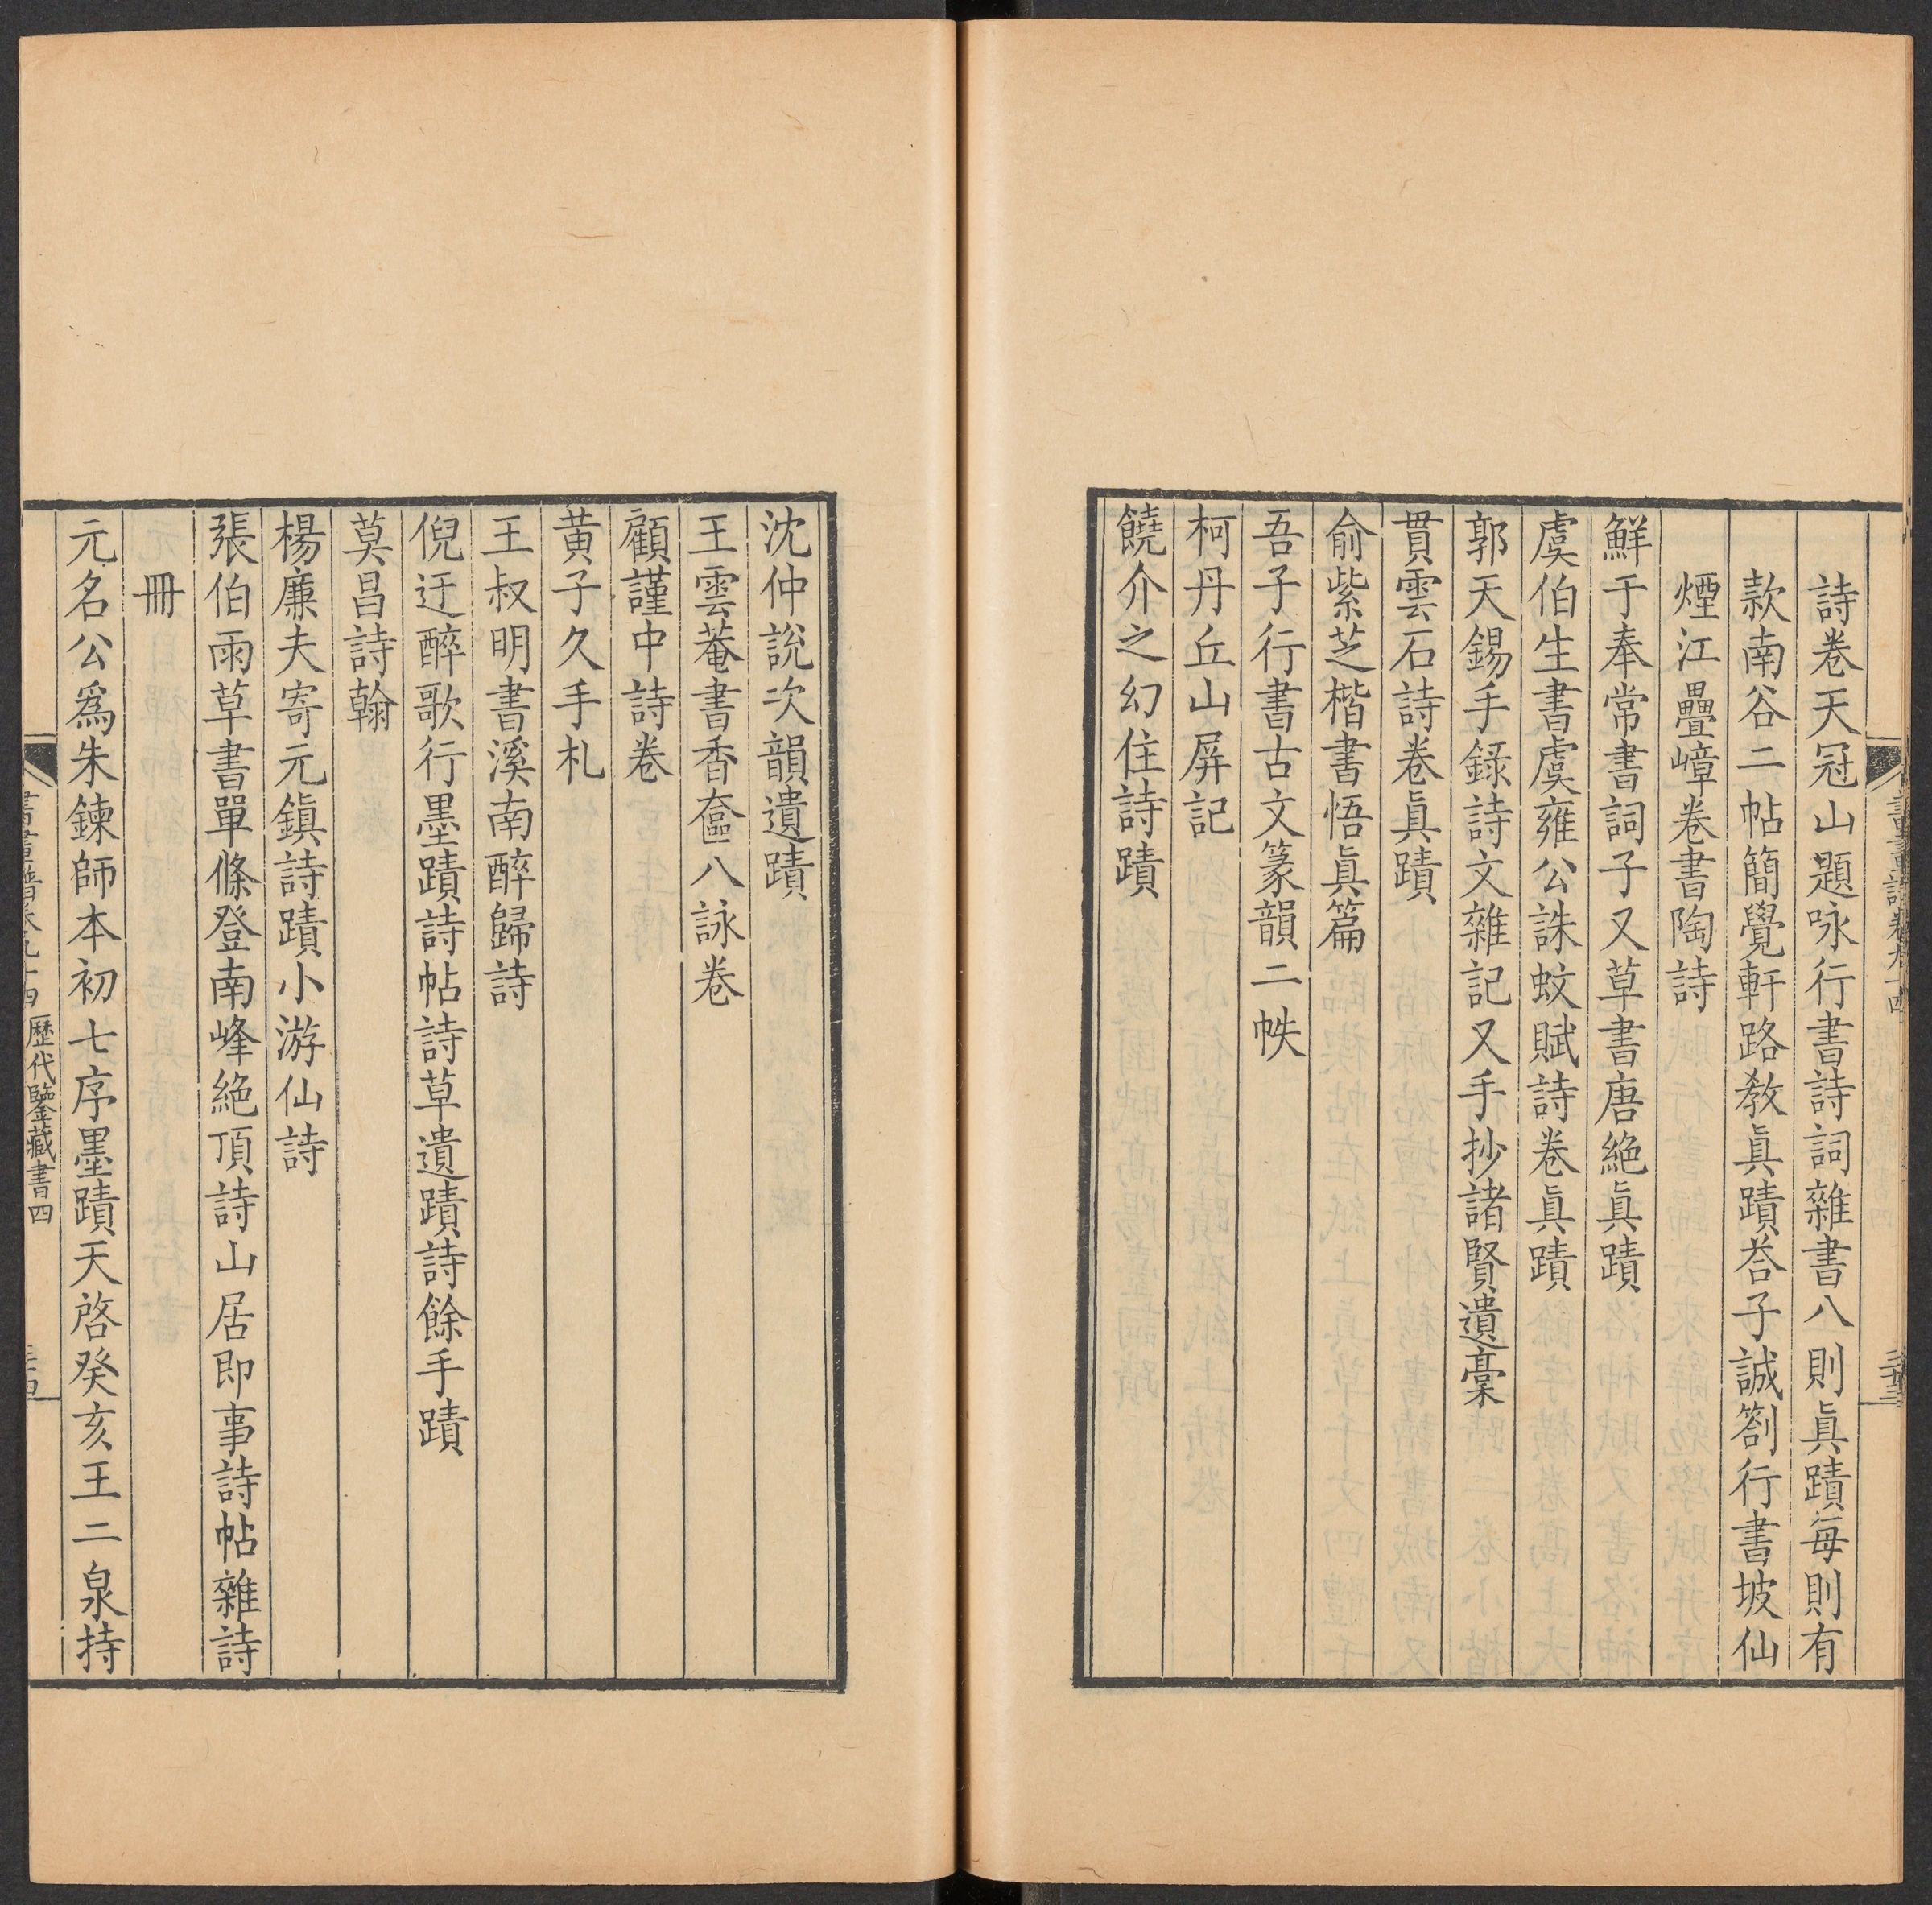 詩卷天冠山題咏行書詩詞雜書八則眞蹟每則有
款南谷二帖簡覺軒路教眞蹟荅子誠劄行書坡仙
煙江疊嶂卷書陶詩
鮮于奉常書詞子又草書唐絶眞蹟
虞伯生書虞雍公誅蚊賦詩卷眞蹟
郭天錫手錄詩文雜記又手抄諸賢遺藁
貫雲石詩卷眞蹟
俞紫芝楷書悟眞篇
吾子行書古文篆韻二帙
柯丹丘山屏記
饒介之幻住詩蹟
沈仲說次韻遺蹟
王雲菴書香奩八詠卷
顧謹中詩卷
黃子久手札
王叔明書溪南醉歸詩
倪迂醉歌行墨蹟詩帖詩草遺蹟詩餘手蹟
莫昌詩翰
楊廉夫寄元鎭詩蹟小游仙詩
張伯雨草書單條登南峰絶頂詩山居即事詩帖雜詩
冊
元名公爲朱鍊師本初七序墨蹟天啓癸亥王二泉持
歷代鑒藏書四